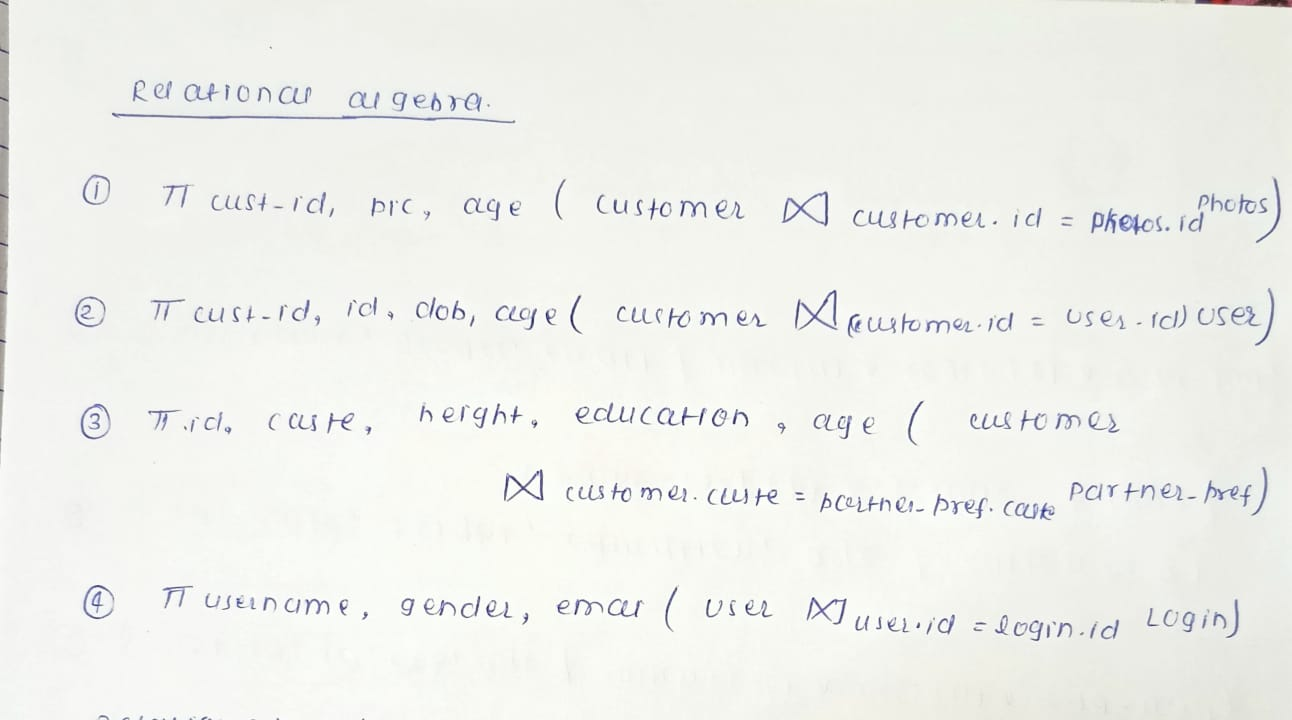 Relational algebra.
① π cust-id, pic, age ( customer ⋈ customer.id = photos.id photos)
② π cust-id, id, dob, age ( customer ⋈ (customer.id = user-id) user)
③ π.id, caste, height, education, age ( customer
⋈ customer.caste = partner-pref.caste partner-pref)
④ π username, gender, email ( user ⋈ user.id = login.id Login)